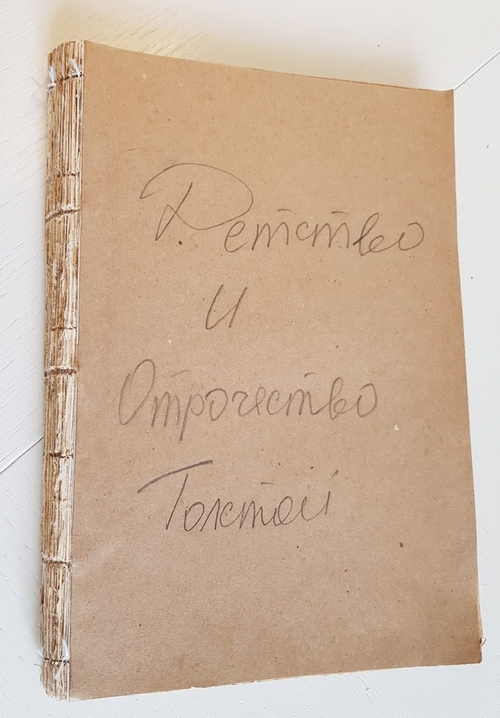 Детство
и
Отрочество
Толстой